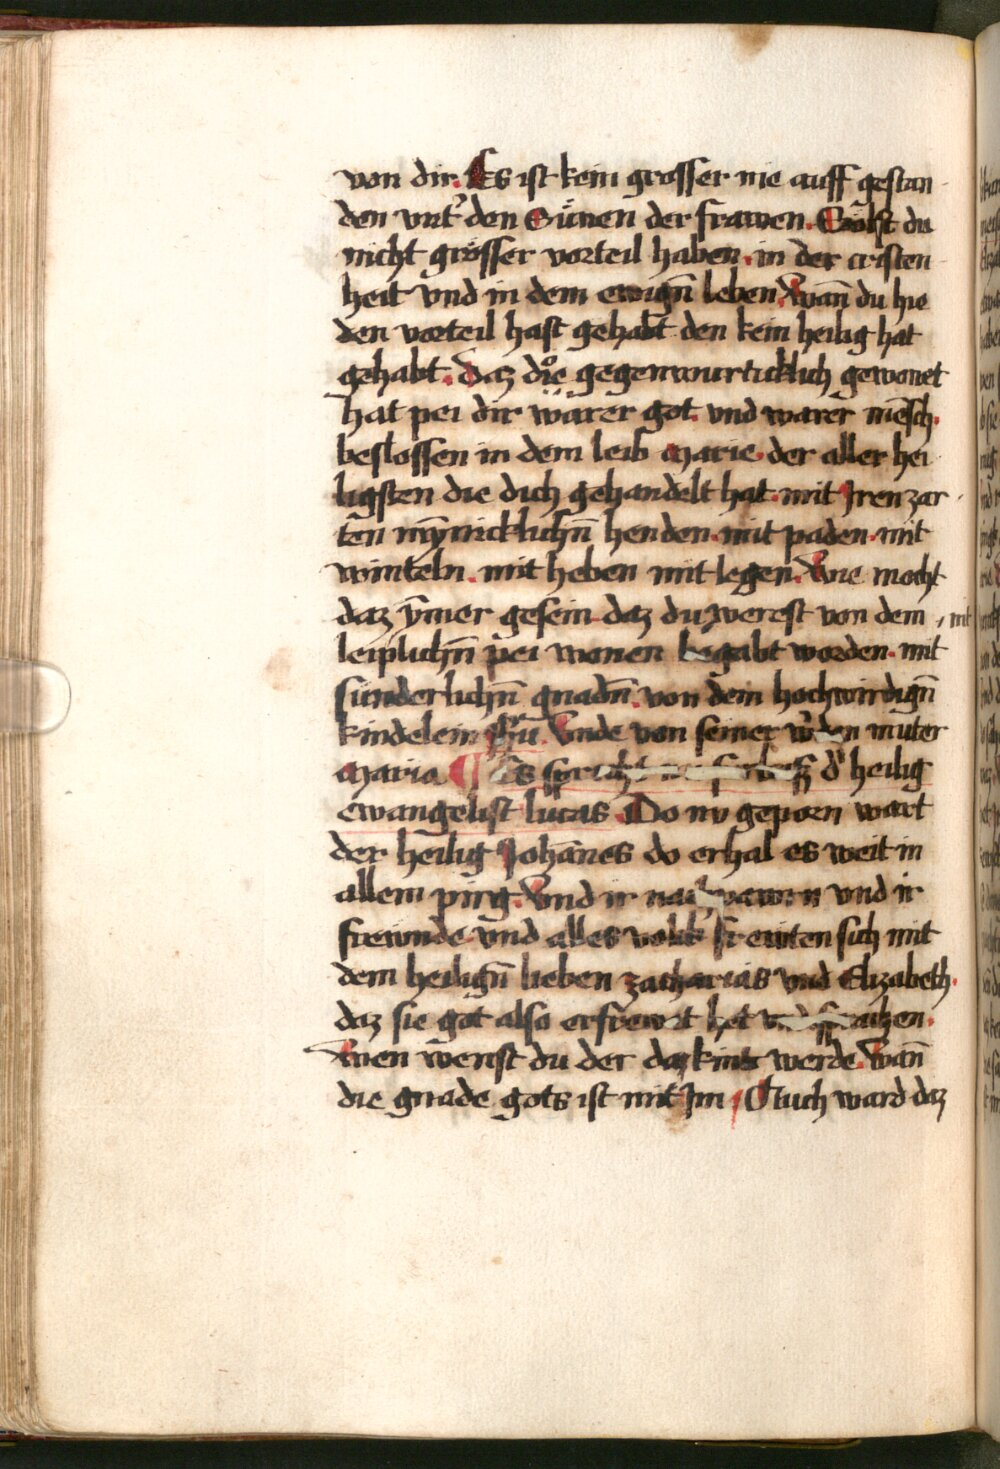 von dir. Es ist kein grosser nie auff gestan
den vnt̾ den Sünen der frawen. Solst du
nicht grösser vorteil haben. in der cristen
heit vnd in dem ewign̄ leben. wan̄ du hie
den vorteil hast gehabt den kein heilig hat
gehabt. Daz dˢe gegenwurticklich gewonet
hat pei dir wärer got. vnd warer mēsch.
beslossen in dem leib Marie. der aller hei
ligsten die dich gehandelt hat. mit Jren zar
ten mȳnicklichn̄ henden. mit paden. mit
winteln. mit heben mit legen. wie mocht
daz ȳmer gesein daz du werest von dem mit
leiplichn̄ pei wonen begabt worden. mit
sünderlichn̄ gnadn̄. von dem hochwirdign̄
kindelein Jhū. Vnde von seiner muter
Maria ¶ Es spricht d̾ heilig
ewangelist lucas. Do nv geporn wart
der heilig Johānes do erhal es weit in
allem pirg. Vnd ir vnd ir
frewnde vnd alles volk frewten sich mit
dem heilign̄ lieben zacharias vnd Elizabeth.
daz sie got also erfrewt het
wen wenst du der daz kint werde. wan̄
die gnade gots ist mit Jm Auch ward daz